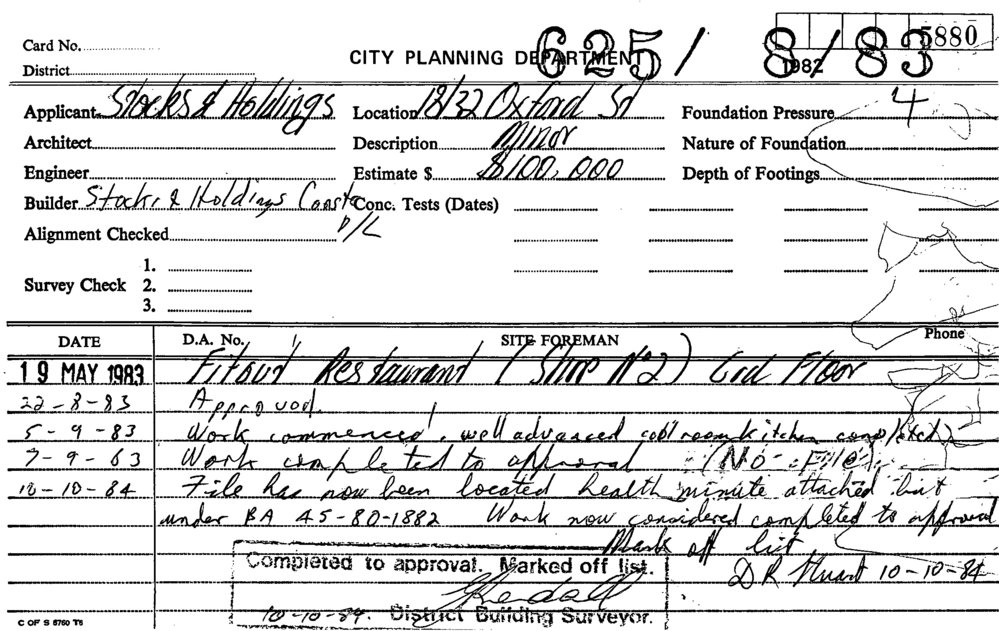 5880
Card No.
625/ 8/83
CITY PLANNING DEPARTMENT 1982
District
Applicant Stocks & Holdings Location 18/32 Oxford St Foundation Pressure 4
Architect Description Minor Nature of Foundation
Engineer Estimate $ $100,000 Depth of Footings
Builder Stocks & Holdings Const Conc. Tests (Dates)
P/L
Alignment Checked
1.
Survey Check 2.
3.
DATE D.A. No. SITE FOREMAN Phone
19 MAY 1983 Fitout Restaurant (Shop No 2) Grd Floor
22-8-83 Approved.
5-9-83 Work commenced, well advanced cool room kitchen completed
7-9-83 Work completed to approval (No File)
10-10-84 File has now been located health minute attached but
under BA 45-80-1882 Work now considered completed to approval
Mark off list
D R Stuart 10-10-84
Completed to approval. Marked off list.
10-10-84. District Building Surveyor.
C OF S 6760 T6